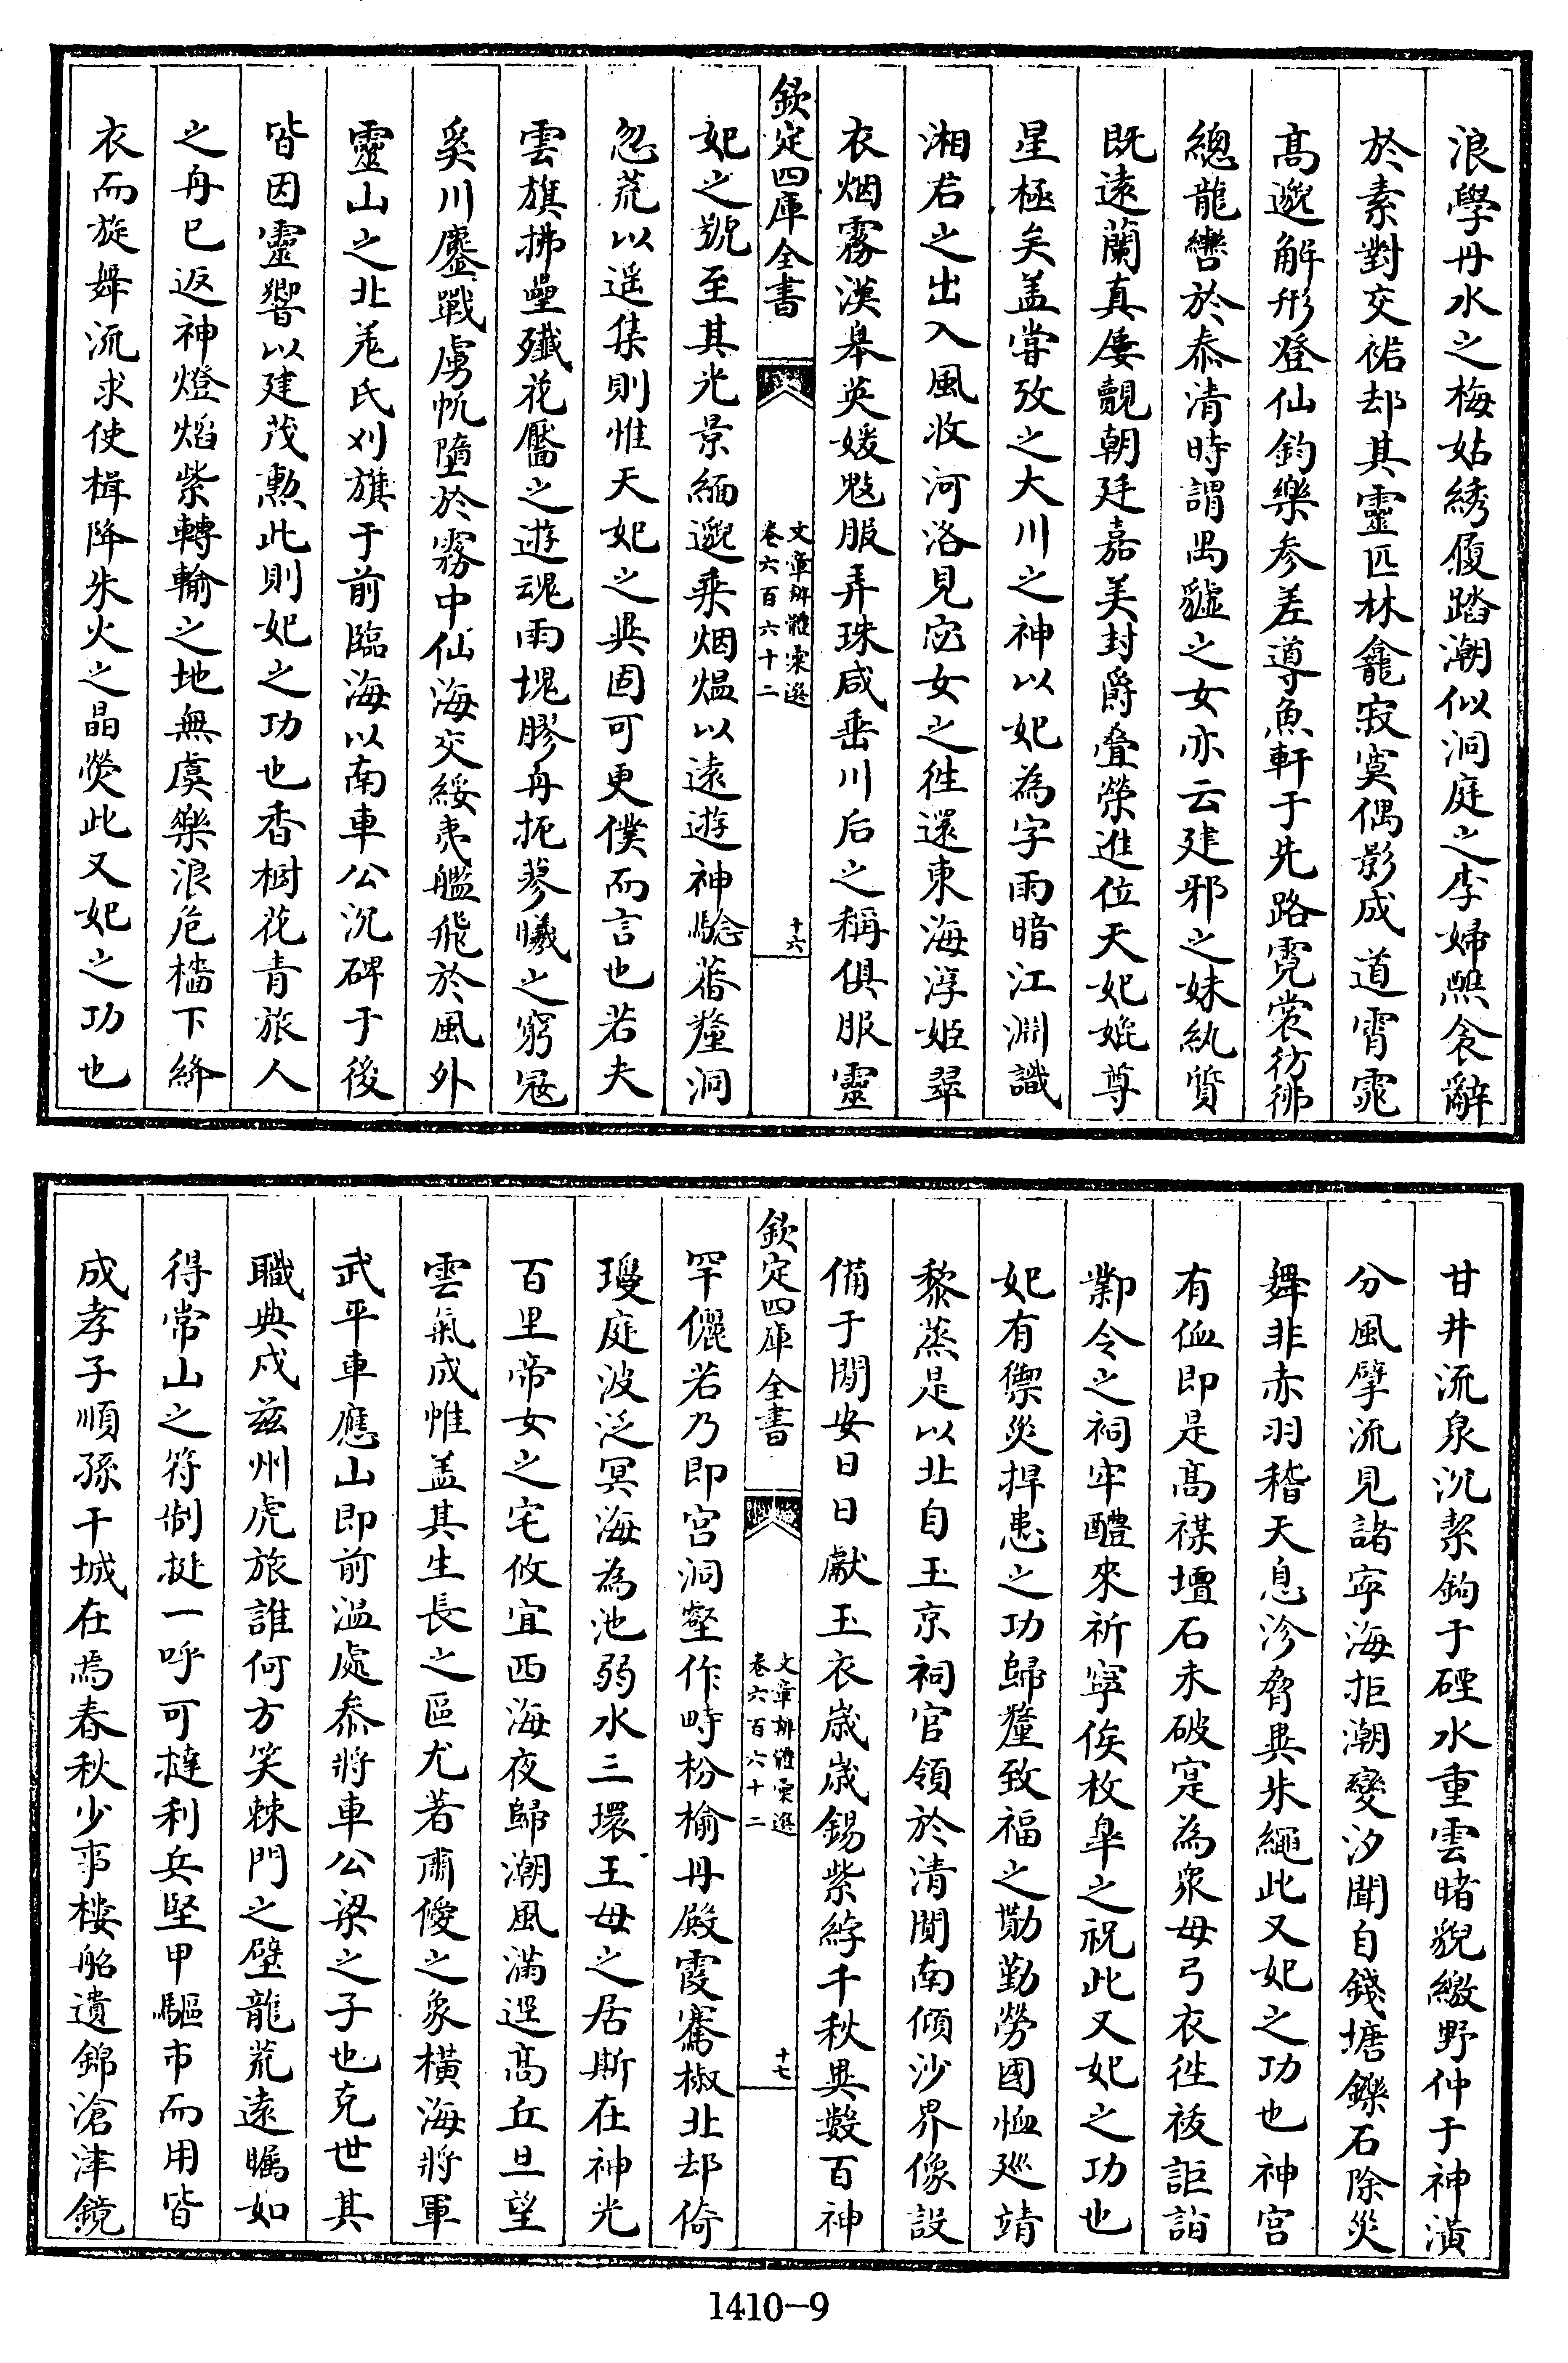 浪學丹水之梅姑綉履踏潮似洞庭之李婦鷰衾辭
於素對交裙却其靈匹林龕寂寞偶影成道霄霓
高邈解形登仙鈞樂參差導魚軒于先路霓裳彷彿
總龍轡於泰清時謂禺號之女亦云建邪之妹紈質
既遠蘭真屢覿朝廷嘉美封爵疊榮進位天妃媲尊
星極矣盖嘗攷之大川之神以妃為字雨暗江淵識
湘君之出入風收河洛見宓女之徃還東海淳姬翠
衣烟霧漢皋英媛鬾服弄珠咸垂川后之稱俱服靈
欽定四庫全書
文章辨體彙選
卷六百六十二
十六
妃之號至其光景緬邈乘烟煴以遠遊神騐蕃釐洞
忽荒以遥集則惟天妃之異固可更僕而言也若夫
雲旗拂壘殲花靨之遊魂雨塊膠舟扼蓼曦之窮寇
奚川鏖戰虜帆墮於霧中仙海交綏夷艦飛於風外
靈山之北羗氏刈旗于前臨海以南車公沉碑于後
皆因靈響以建茂勲此則妃之功也香樹花青旅人
之舟已返神燈焰紫轉輸之地無虞樂浪危檣下絳
衣而旋舞流求使楫降朱火之晶熒此又妃之功也
甘井流泉沉絜鉤于硜水重雲睹貌繳野仲于神潢
分風擘流見諸寧海拒潮變汐聞自錢塘鑠石除災
舞非赤羽稽天息沴脅異朱繩此又妃之功也神宮
有侐即是高禖壇石未破寔為衆母弓衣徃祓詎詣
鄴令之祠牢醴來祈寜俟枚皐之祝此又妃之功也
妃有禦災捍患之功歸釐致福之勩勤勞國恤廵靖
黎蒸是以北自玉京祠官領於清閒南傾沙界像設
備于閒安日日獻玉衣歳歳錫紫綍千秋異數百神
欽定四庫全書
文章辨體彙選
卷六百六十二
十七
罕儷若乃即宫洞壑作畤枌榆丹殿霞騫椒北却倚
瓊庭波泛冥海為池弱水三環王母之居斯在神光
百里帝女之宅攸宜西海夜歸潮風滿逕高丘旦望
雲氣成帷盖其生長之區尤著肅僾之象橫海將軍
武平車應山即前溫處叅將車公梁之子也克世其
職典戍兹州虎旅誰何方笑棘門之壁龍荒遠矚如
得常山之符制挺一呼可撻利兵堅甲驅市而用皆
成孝子順孫干城在焉春秋少事樓船遺錦滄津鏡
1410—9